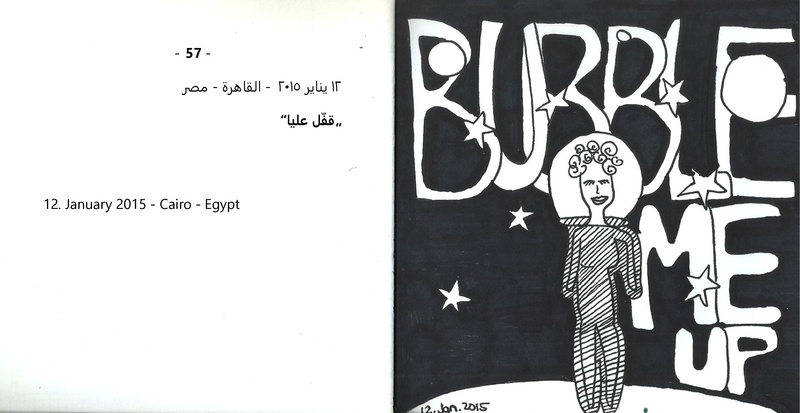 - 57 -
١٢ يناير ٢٠١٥ - القاهرة - مصر
„قفّل عليا“
12. January 2015 - Cairo - Egypt
BUBBLE
ME
UP
12.Jan.2015